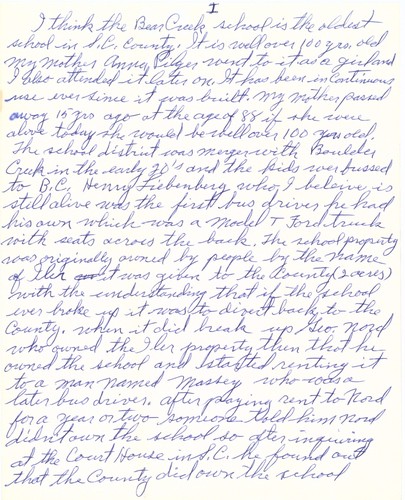 I
I think the Bear Creek school is the oldest
school in S.C. County. It is well over 100 yrs. old
My mother Anna Pilger went to it as a girl and
I also attended it later on. It has been in continuous
use ever since it was built. My mother passed
away 15 yrs ago at the age of 88 if she were
alive today she would be well over 100 yrs old.
The school district was merger with Boulder
Creek in the early 20's and the kids were bussed
to B.C. Henry Liebenberg who, I beleive, is
still alive was the first bus driver he had
his own which was a Model T Ford truck
with seats across the back. The school property
was originally owned by people by the name
of Iler it was given to the County (2 acres)
with the understanding that if the school
ever broke up it was to divert back to the
County. when it did break up Geo. Nord
who owned the Iler property then that he
owned the school and started renting it
to a man named Massey who was a
later bus driver. after paying rent to Nord
for a year or two someone told him Nord
didn't own the school so after inquiring
at the Court House in S.C. he found out
that the County did own the school